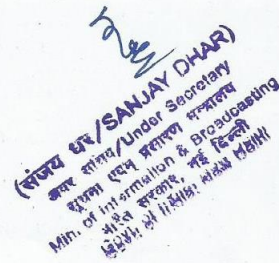 (संजय धर/SANJAY DHAR)
अवर सचिव/Under Secretary
सूचना एवम् प्रसारण मन्त्रालय
Min. of Information & Broadcasting
भारत सरकार, नई दिल्ली